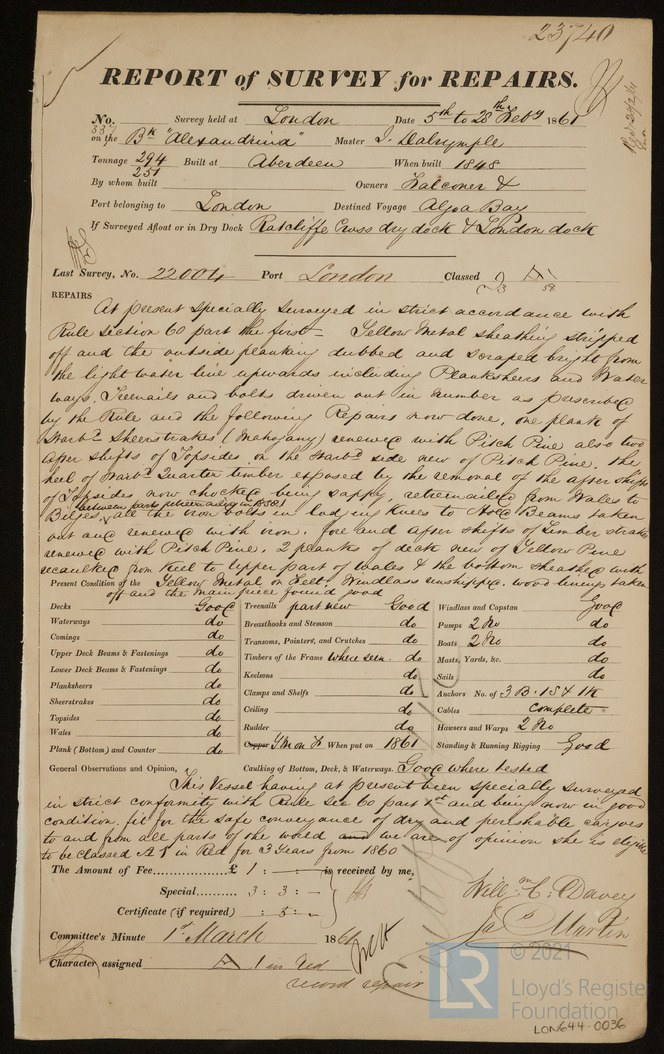 23740
REPORT of SURVEY for REPAIRS.
No. 337 Survey held at London Date 5th to 28th Feby 1861
on the Bk "Alexandrina" Master J. Dalrymple
Tonnage 294 Built at Aberdeen When built 1848
251
By whom built Owners Falconer &
Port belonging to London Destined Voyage Algoa Bay
If Surveyed Afloat or in Dry Dock Ratcliffe Cross dry dock & London dock
Last Survey, No. 22004 Port London Classed
REPAIRS
At present specially surveyed in strict accordance with
Rule section 60 part the first – Yellow Metal sheathing stripped
off and the outside planking dubbed and scraped bright from
the light water line upwards including Planksheers and Water
ways, Treenails and bolts driven out in number as prescribed
by the Rule and the following Repairs now done, one plank of
Starbd Sheerstrakes (Mahogany) renewed with Pitch Pine also two
after shifts of Topsides on the Starbd side new of Pitch Pine. the
heel of Starbd Quarter timber exposed by the removal of the after shifts
of Topsides now chocked being sappy, retreenailed from Wales to
Bilges, all the iron bolts in lodging knees to Hold Beams taken
out and renewed with iron, fore and after shifts of Limber strakes
renewed with Pitch Pine. 2 planks of deck new of Yellow Pine
recaulked from Keel to upper part of Wales & the bottom sheathed with
Present Condition of the Yellow Metal on Felt. Windlass unshipped, wood linings taken
off and the main piece found good
Decks Good Treenails part new Good Windlass and Capstan Good
Waterways do Breasthooks and Stemson do Pumps 2 No do
Comings do Transoms, Pointers, and Crutches do Boats 2 No do
Upper Deck Beams & Fastenings do Timbers of the Frame where seen do Masts, Yards, &c. do
Lower Deck Beams & Fastenings do Keelsons do Sails do
Planksheers do Clamps and Shelfs do Anchors No. of 3 B. 1 S & 1 K
Sheerstrakes do Ceiling do Cables complete
Topsides do Rudder do Hawsers and Warps 2 No
Wales do Copper YM on F When put on 1861 Standing & Running Rigging Good
Plank (Bottom) and Counter do
General Observations and Opinion, Caulking of Bottom, Deck, & Waterways. Good where tested
This Vessel having at present been specially surveyed
in strict conformity with Rule Sec 60 part 1st and being now in good
condition, fit for the safe conveyance of dry and perishable cargoes
to and from all parts of the world and we are of opinion she is eligible
to be classed A 1 in Red for 3 Years from 1860
The Amount of Fee £ 1 : – : – is received by me,
Special 3 : 3 : –
Certificate (if required) : 5 : –
Willm C. Davey
Jas Martin
Committee's Minute 1st March 1861
Character assigned A 1 in Red
record repair
© 2021
LR
Lloyd's Register
Foundation
LON644-0036